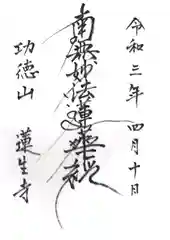 令和三年 四月十日
南無妙法蓮華経
功徳山
蓮生寺